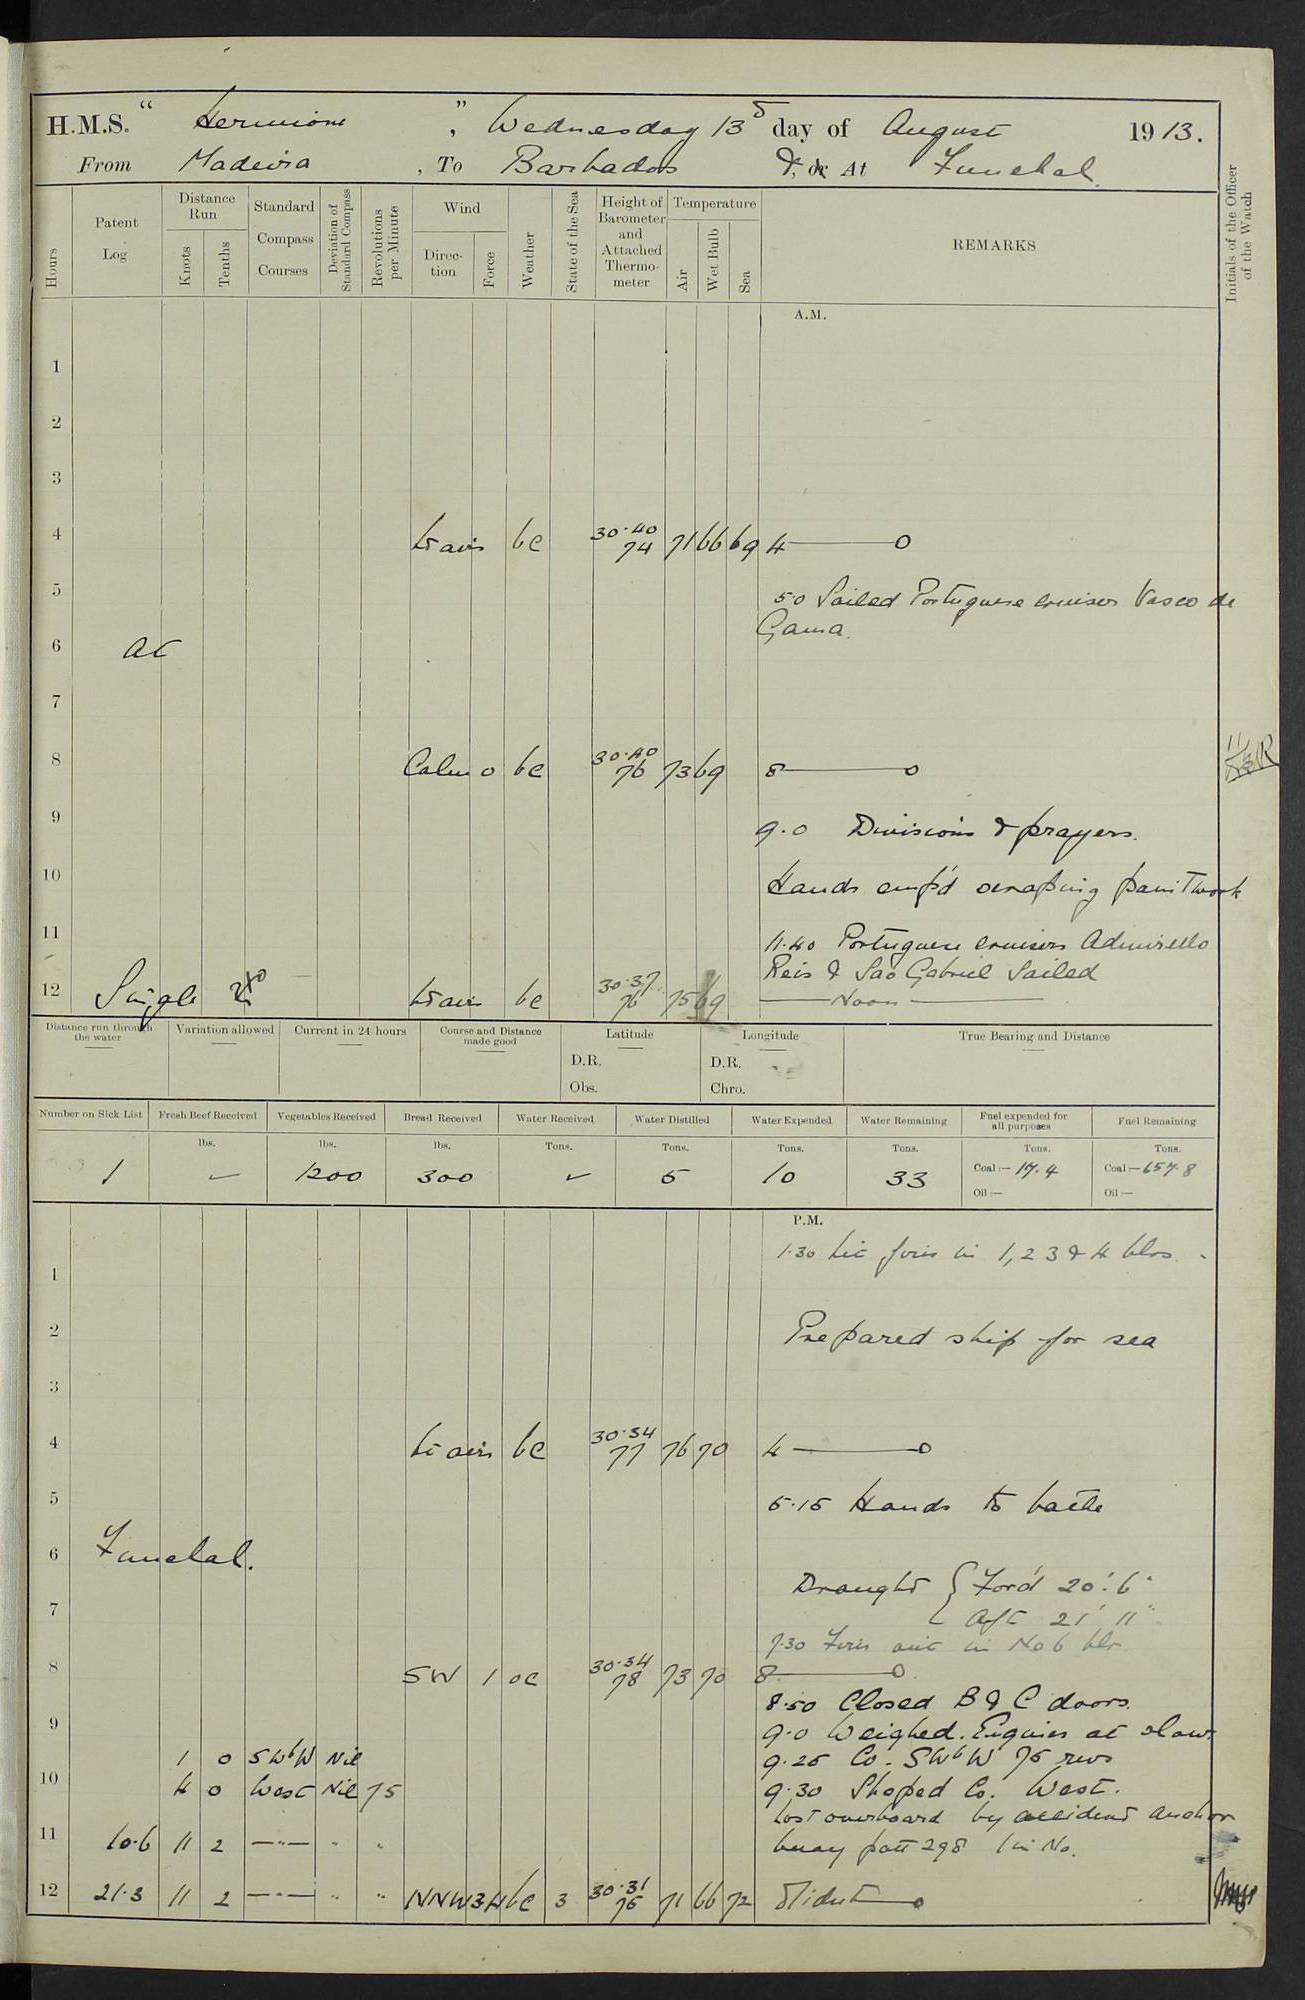 H.M.S. " Hermione ", Wednesday 13 day of August 1913.
From Madeira, To Barbados &, or At Funchal.
Hours
Patent Log
Distance Run
Knots
Tenths
Standard Compass Courses
Deviation of Standard Compass
Revolutions per Minute
Wind
Direction
Force
Weather
State of the Sea
Height of Barometer and Attached Thermometer
Temperature
Air
Wet Bulb
Sea
REMARKS
Initials of the Officer of the Watch
A.M.
1
2
3
4 Lt airs bc 30.40 74 71 66 69 4 ——— o
5 5.0 Sailed Portuguese cruiser Vasco de
Gama.
6 At
7
8 Calm 0 bc 30.40 76 73 69 8 ——— o
9 9.0 Divisions & prayers.
10 Hands emp'd scraping paintwork
11 11.40 Portuguese cruisers Admirello
Reis & Sao Gabriel Sailed
12 Single Lt airs bc 30.37 76 75 69 —— Noon ——
Distance run through the water
Variation allowed
Current in 24 hours
Course and Distance made good
Latitude
D.R.
Obs.
Longitude
D.R.
Chro.
True Bearing and Distance
Number on Sick List
Fresh Beef Received
Vegetables Received
Bread Received
Water Received
Water Distilled
Water Expended
Water Remaining
Fuel expended for all purposes
Fuel Remaining
lbs. lbs. lbs. Tons. Tons. Tons. Tons. Tons. Tons.
1 ✓ 1200 300 ✓ 5 10 33 Coal — 17.4 Coal — 657.8
Oil — Oil —
P.M.
1.30 Lit fires in 1, 2 3 & 4 blrs.
1
2 Prepared ship for sea
3
4 Lt airs bc 30.34 77 76 70 4 ——— o
5 5.15 Hands to bathe
6 Funchal.
Draught { For'd 20' 6"
7 Aft 21' 11"
7.30 Fires out in No 6 blr.
8 SW 1 oc 30.34 78 73 70 8 ——— o
8.50 Closed B & C doors.
9 9.0 Weighed. Engines at slow.
1 0 SWbW Nil 9.25 Co. SWbW 75 revs
10 4 0 West Nil 75 9.30 Shaped Co. West.
Lost overboard by accident anchor
11 10.6 11 2 —"— " " buoy patt 298 1 in No.
12 21.3 11 2 —"— " " NNW 3-4 bc 3 30.31 75 71 66 72 Midnt ——— o